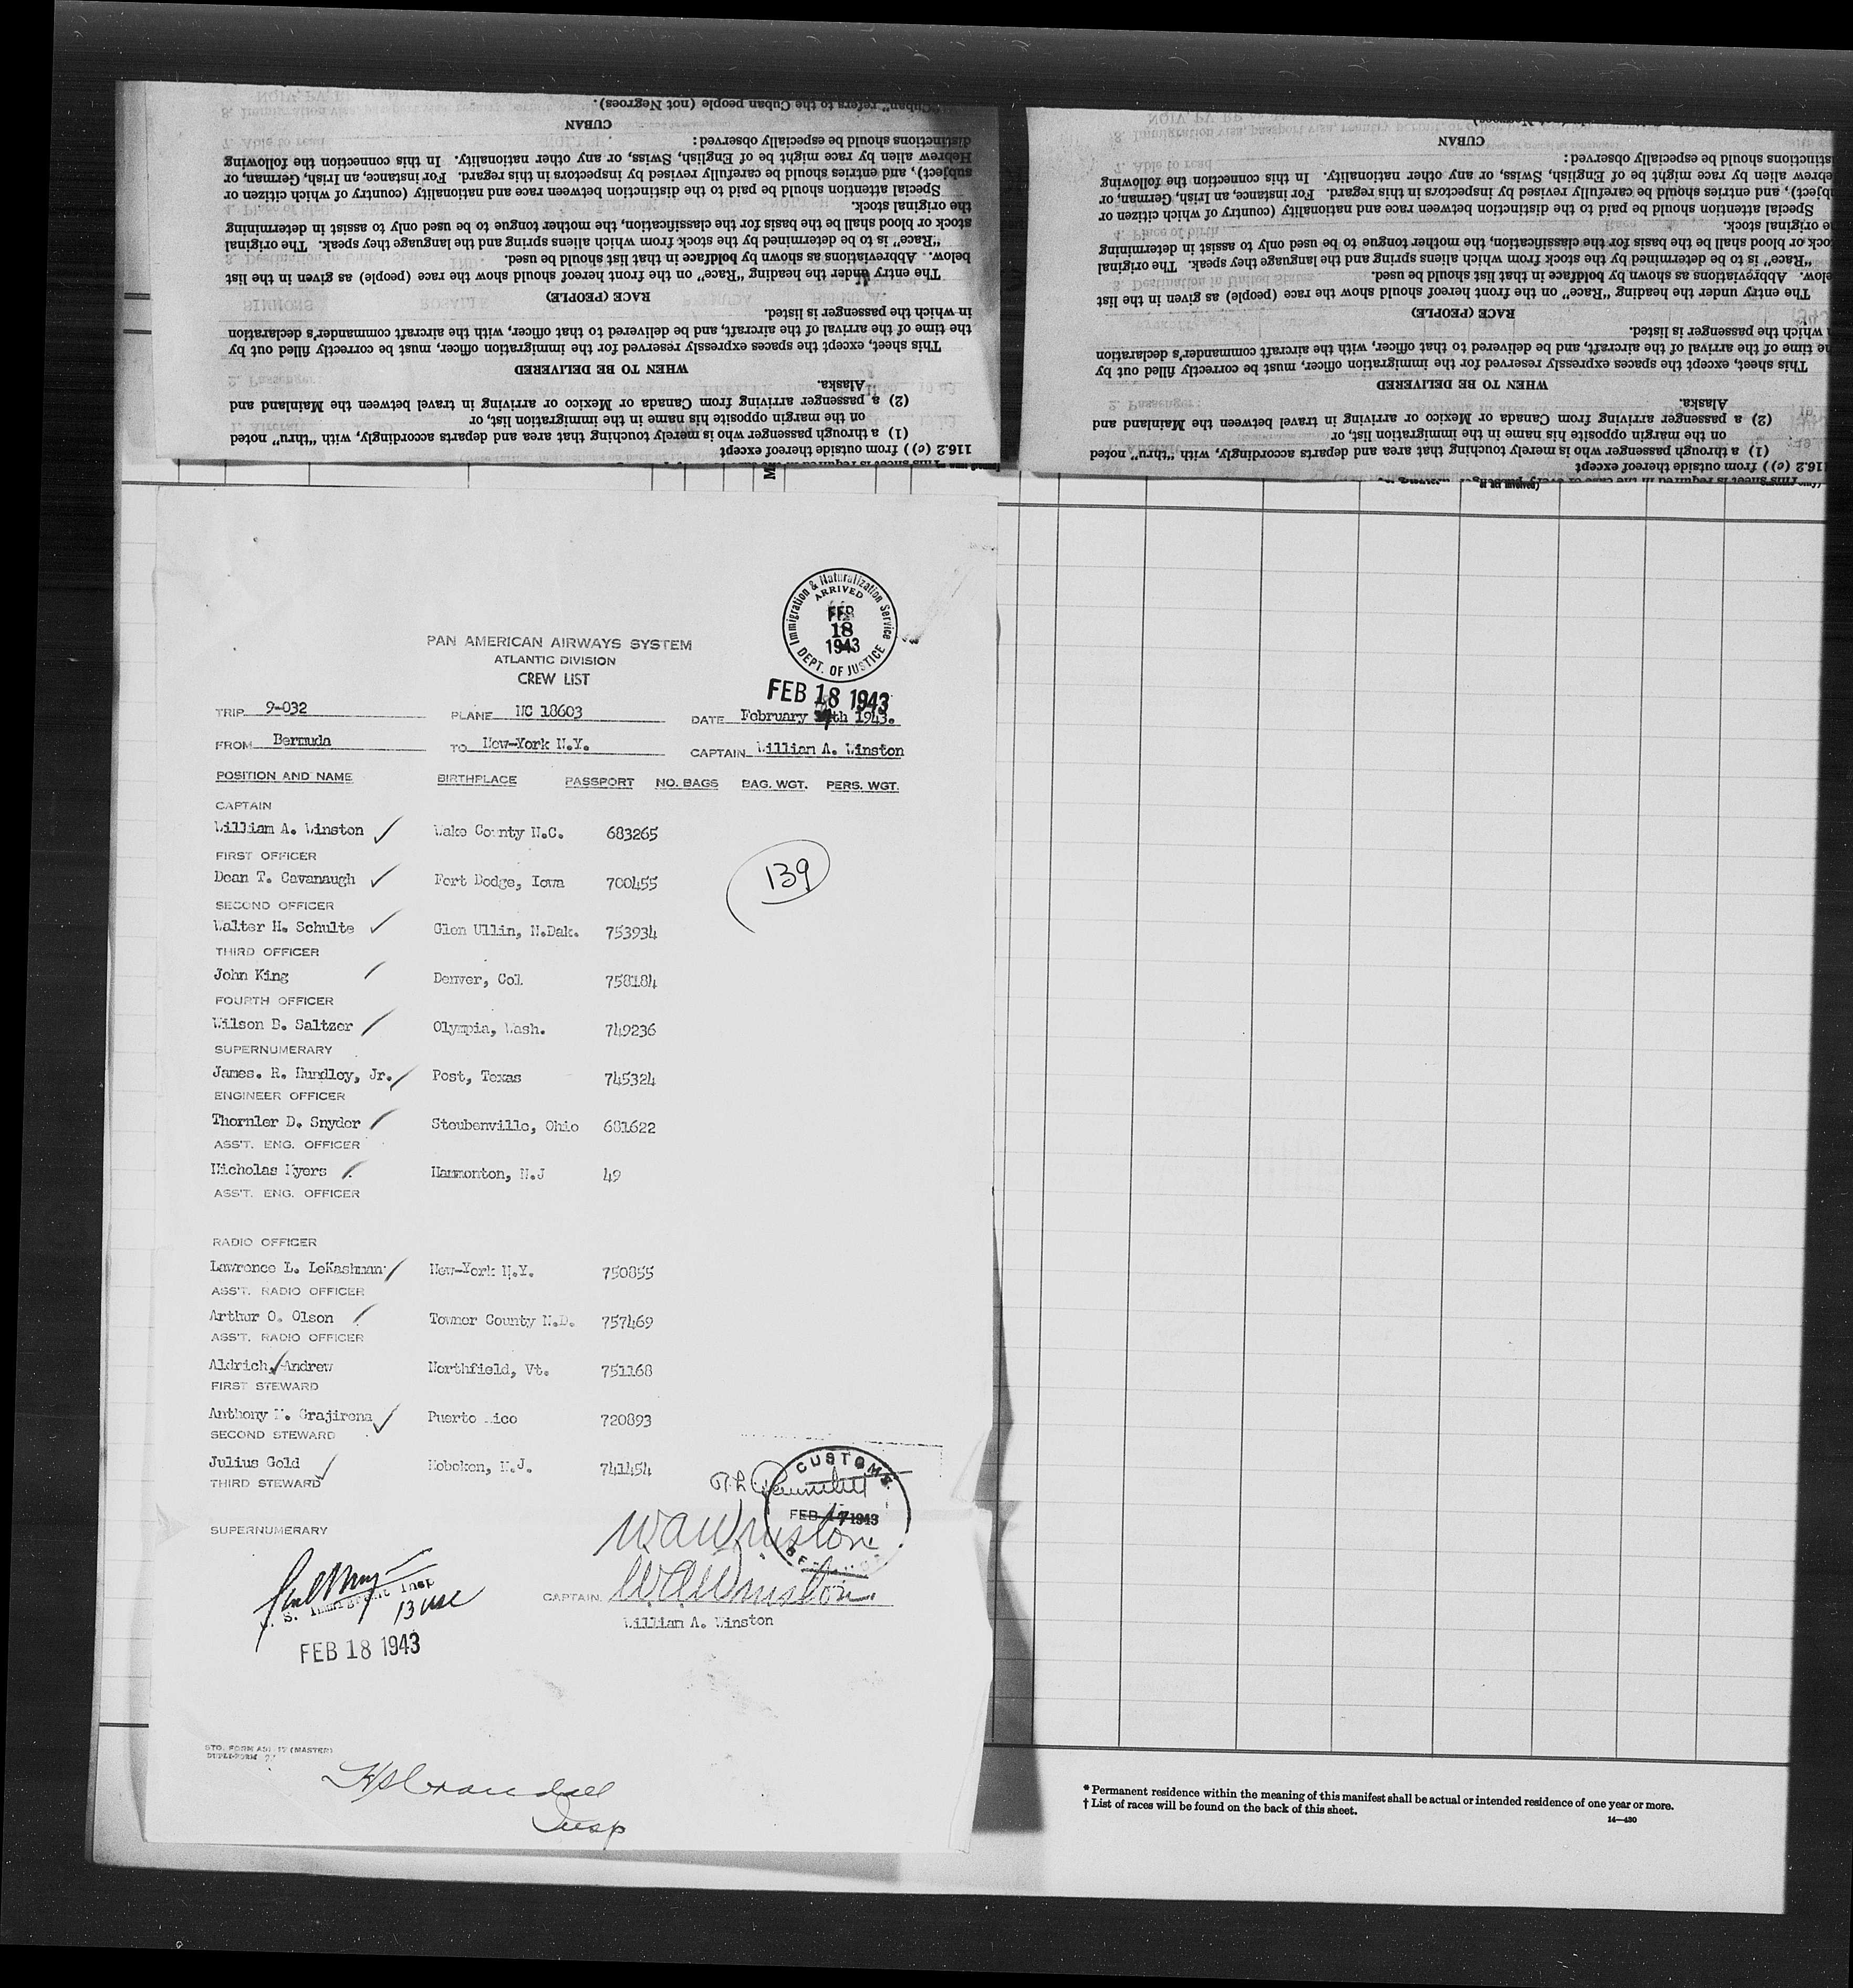 "Cuban" refers to the Cuban people (not Negroes).
CUBAN
distinctions should be especially observed:
Hebrew alien by race might be of English, Swiss, or any other nationality. In this connection the following
subject), and entries should be carefully revised by inspectors in this regard. For instance, an Irish, German, or
Special attention should be paid to the distinction between race and nationality (country of which citizen or
the original stock.
stock or blood shall be the basis for the classification, the mother tongue to be used only to assist in determining
"Race" is to be determined by the stock from which aliens spring and the language they speak. The original
below. Abbreviations as shown by boldface in that list should be used.
The entry under the heading "Race" on the front hereof should show the race (people) as given in the list
RACE (PEOPLE)
in which the passenger is listed.
the time of the arrival of the aircraft, and be delivered to that officer, with the aircraft commander's declaration
This sheet, except the spaces expressly reserved for the immigration officer, must be correctly filled out by
WHEN TO BE DELIVERED
Alaska.
(2) a passenger arriving from Canada or Mexico or arriving in travel between the Mainland and
on the margin opposite his name in the immigration list, or
(1) a through passenger who is merely touching that area and departs accordingly, with "thru" noted
116.2 (c)) from outside thereof except
CUBAN
istinctions should be especially observed:
ebrew alien by race might be of English, Swiss, or any other nationality. In this connection the following
bject), and entries should be carefully revised by inspectors in this regard. For instance, an Irish, German, or
Special attention should be paid to the distinction between race and nationality (country of which citizen or
e original stock.
ock or blood shall be the basis for the classification, the mother tongue to be used only to assist in determining
"Race" is to be determined by the stock from which aliens spring and the language they speak. The original
elow. Abbreviations as shown by boldface in that list should be used.
The entry under the heading "Race" on the front hereof should show the race (people) as given in the list
RACE (PEOPLE)
which the passenger is listed.
e time of the arrival of the aircraft, and be delivered to that officer, with the aircraft commander's declaration
This sheet, except the spaces expressly reserved for the immigration officer, must be correctly filled out by
WHEN TO BE DELIVERED
Alaska.
(2) a passenger arriving from Canada or Mexico or arriving in travel between the Mainland and
on the margin opposite his name in the immigration list, or
(1) a through passenger who is merely touching that area and departs accordingly, with "thru" noted
116.2 (c)) from outside thereof except
This sheet is required in the case of every passenger
Immigration & Naturalization Service
ARRIVED
FEB
18
1943
DEPT. OF JUSTICE
PAN AMERICAN AIRWAYS SYSTEM
ATLANTIC DIVISION
CREW LIST
FEB 18 1943
TRIP 9-032 PLANE NC 18603 DATE February th 1943.
FROM Bermuda TO New-York N.Y. CAPTAIN William A. Winston
POSITION AND NAME BIRTHPLACE PASSPORT NO. BAGS BAG. WGT. PERS. WGT.
CAPTAIN
William A. Winston Wake County N.C. 683265
139
FIRST OFFICER
Dean T. Cavanaugh Fort Dodge, Iowa 700455
SECOND OFFICER
Walter H. Schulte Glen Ullin, N.Dak. 753934
THIRD OFFICER
John King Denver, Col. 758184
FOURTH OFFICER
Wilson B. Saltzer Olympia, Wash. 749236
SUPERNUMERARY
James. R. Hundley, Jr. Post, Texas 745324
ENGINEER OFFICER
Thornler D. Snyder Steubenville, Ohio 681622
ASS'T. ENG. OFFICER
Nicholas Myers Hammonton, N.J 49
ASS'T. ENG. OFFICER
RADIO OFFICER
Lawrence L. LeKashman New-York N.Y. 750855
ASS'T. RADIO OFFICER
Arthur O. Olson Towner County N.D. 757469
ASS'T. RADIO OFFICER
Aldrich, Andrew Northfield, Vt. 751168
FIRST STEWARD
Anthony M. Grajirena Puerto ico 720893
SECOND STEWARD
Julius Gold Hoboken, N.J. 741454
THIRD STEWARD
CUSTOMS
FEB 17 1943
WAWinston
SUPERNUMERARY
S. Immigrant Insp
13 USC
CAPTAIN WAWinston
William A. Winston
FEB 18 1943
STO. FORM (MASTER)
DUPLI-FORM
Crandall
Insp
* Permanent residence within the meaning of this manifest shall be actual or intended residence of one year or more.
† List of races will be found on the back of this sheet.
14—430